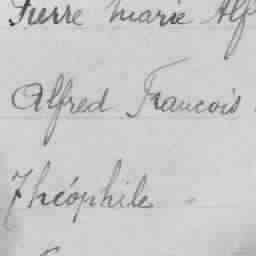 Pierre Marie Alf
Alfred Francois
Théophile